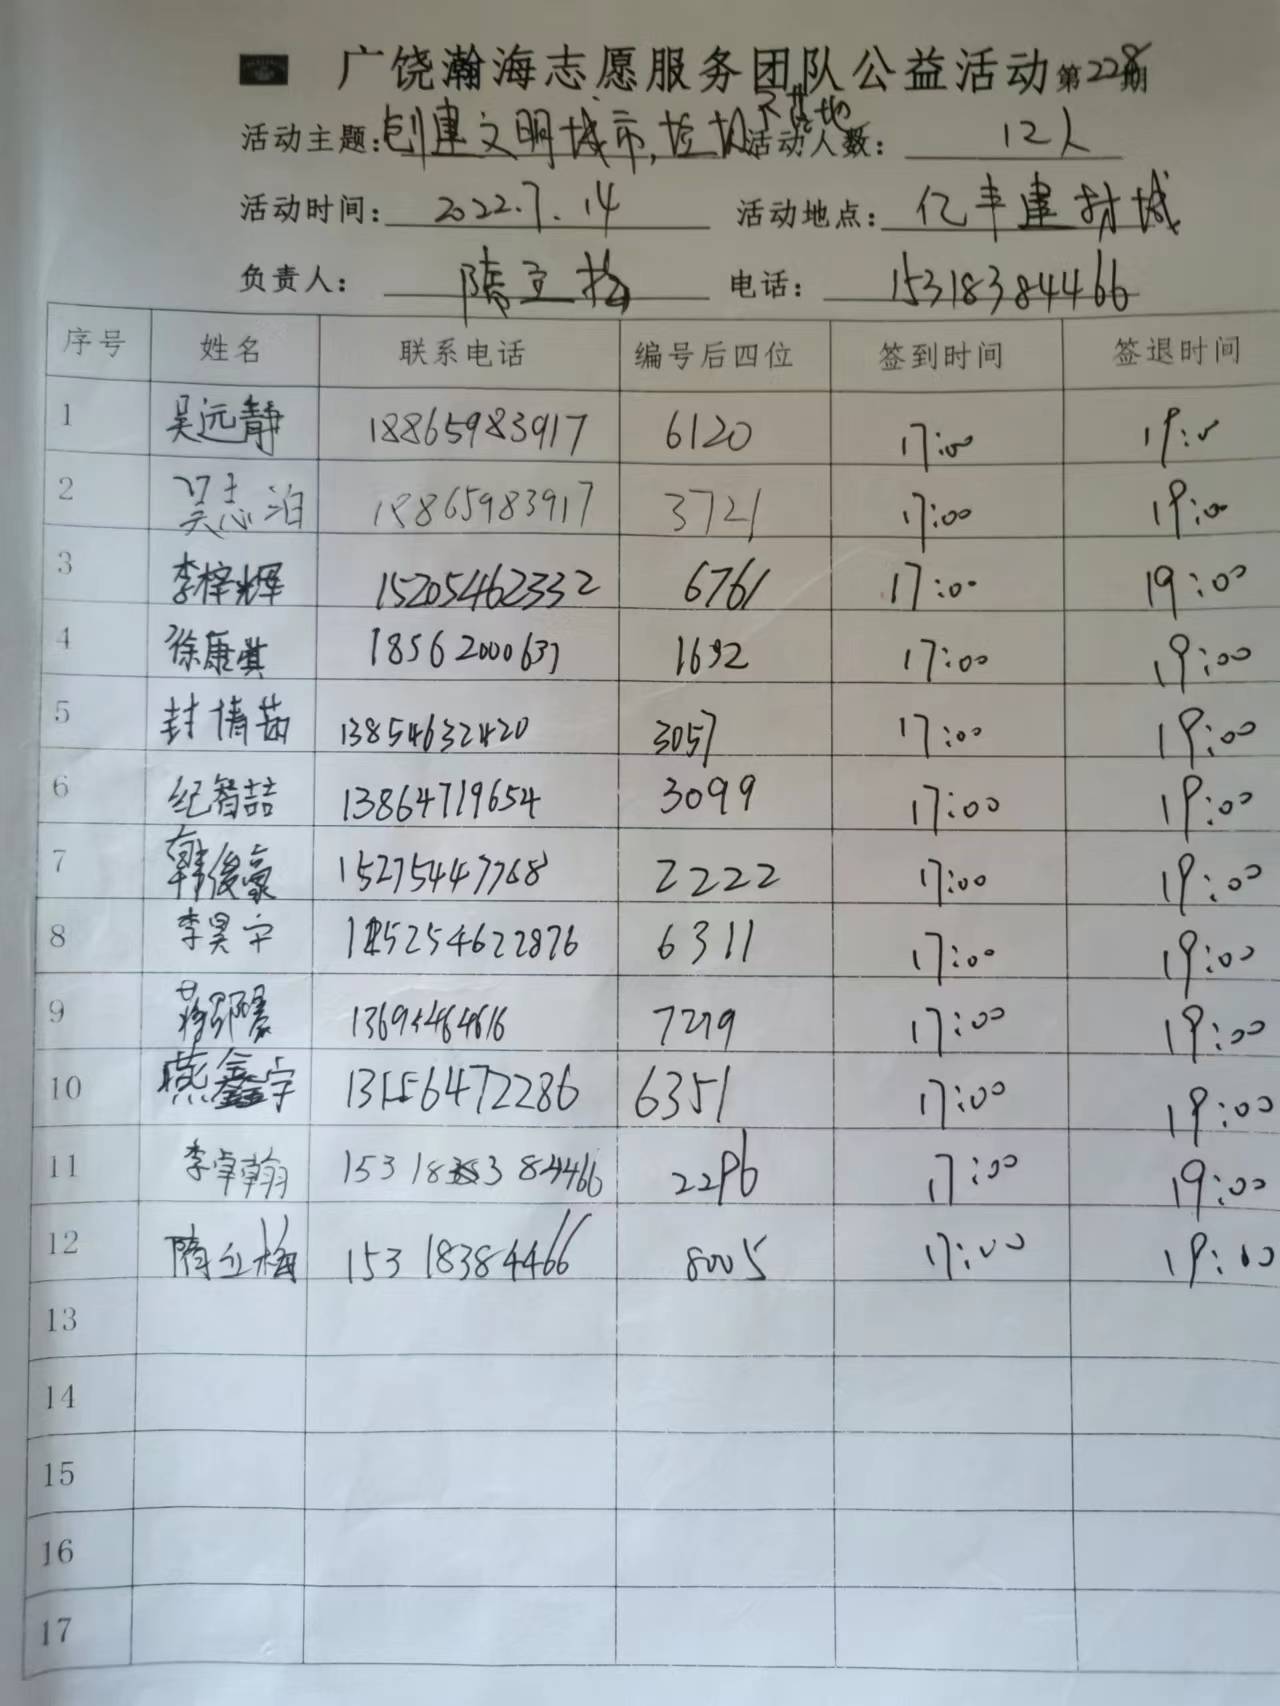 广饶瀚海志愿服务团队公益活动第228期
活动主题:创建文明城市,垃圾不落地 活动人数: 12人
活动时间: 2022.7.14 活动地点: 亿丰建材城
负责人: 隋立梅 电话: 15318384466
序号 姓名 联系电话 编号后四位 签到时间 签退时间
1 吴远静 18865983917 6120 17:00 19:00
2 吴志泊 18865983917 3721 17:00 19:00
3 李梓辉 15205462332 6761 17:00 19:00
4 徐康淇 18562000637 1692 17:00 19:00
5 封倩茹 13854632420 3057 17:00 19:00
6 纪智喆 13864719654 3099 17:00 19:00
7 韩俊豪 15275447768 2222 17:00 19:00
8 李昊宇 15254622876 6311 17:00 19:00
9 7279 17:00 19:00
10 燕鑫宇 6351 17:00 19:00
11 李卓翰 15318384466 2296 17:00 19:00
12 隋立梅 15318384466 8005 17:00 19:00
13
14
15
16
17